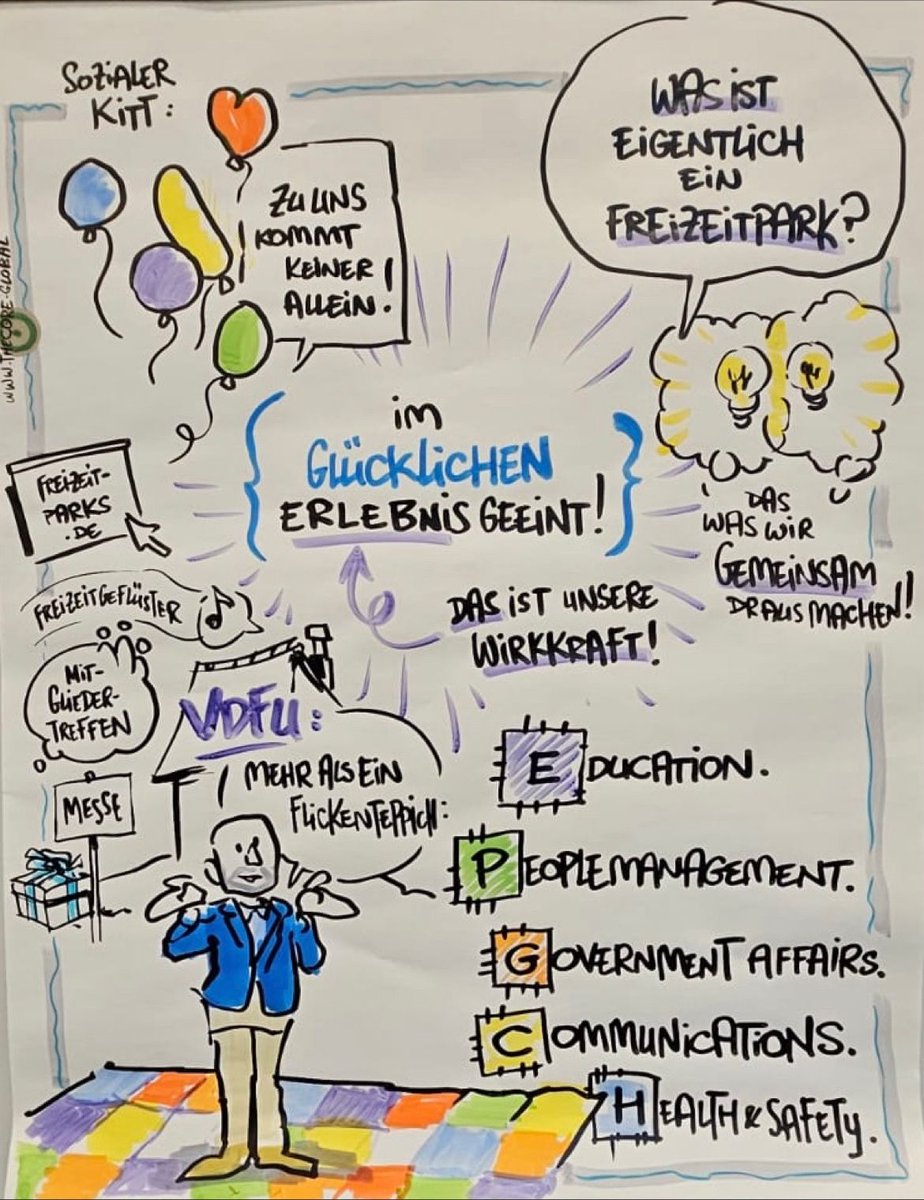 SOZiALER
KiTT:
ZU UNS
KOMMT
KEINER
ALLEiN!
WAS iST
EiGENTLiCH
EiN
FREiZEiTPARK?
WWW.THECORE-GLOBAL
im
GLÜCKLiCHEN
ERLEBNiS GEEiNT!
DAS
WAS WiR
GEMEiNSAM
DRAUS MACHEN!
FREiZEiT-
PARKS
.DE
FREiZEiTGEFLÜSTER
DAS iST UNSERE
WiRKKRAFT!
MiT-
GLiEDER-
TREFFEN
VDFU:
MEHR ALS EiN
FLiCKENTEPPiCH:
MESSE
EDUCATiON.
PEOPLEMANAGEMENT.
GOVERNMENT AFFAiRS.
COMMUNiCATiONS.
HEALTH & SAFETY.